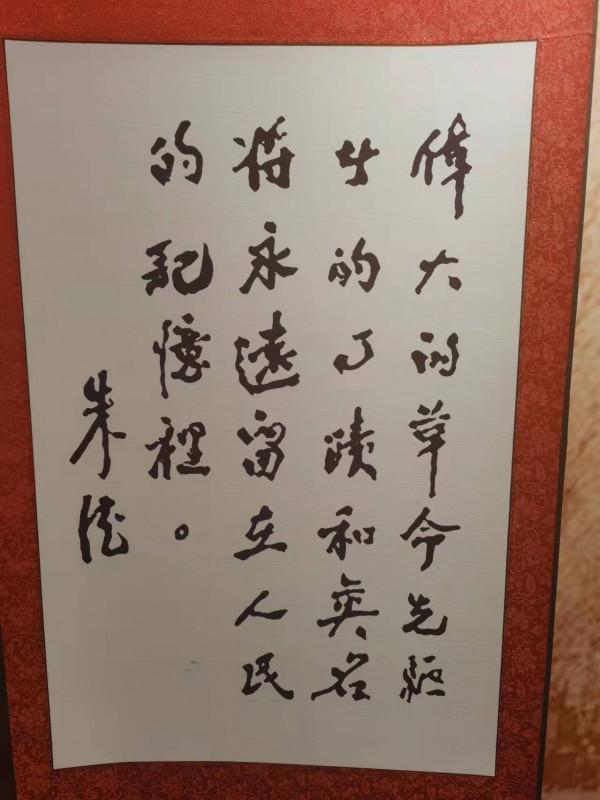 偉大的革命先驅
者的事蹟和英名
将永遠留在人民
的記憶裡。
朱德